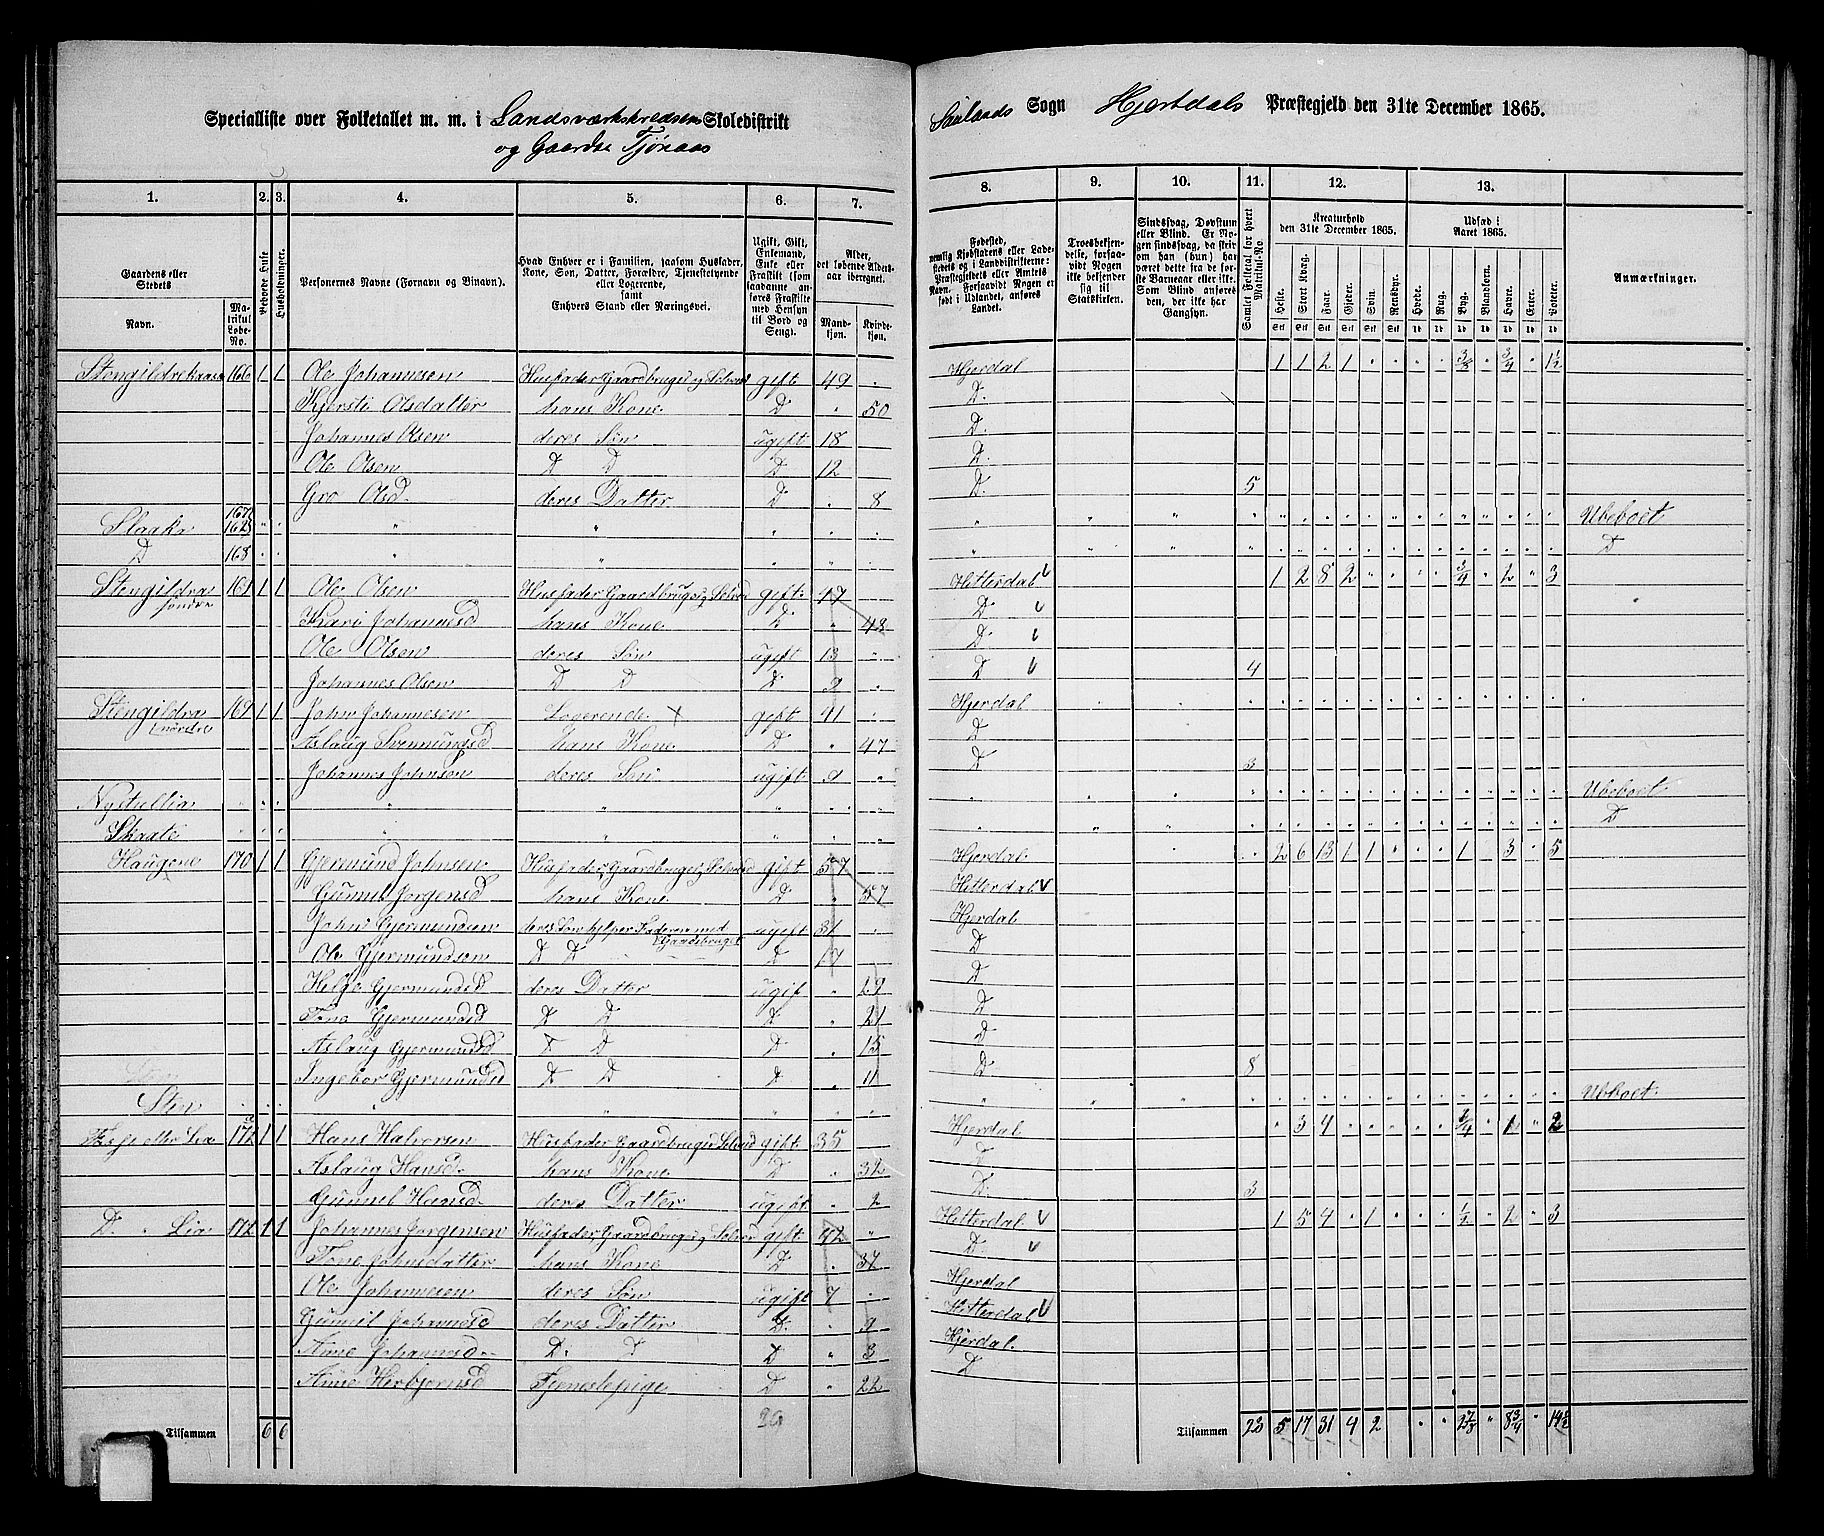 Specialliste over Folketallet m. m. i Landsværkskredsen Skoledistrikt
og Gaarden Tjønaas
Saulands Sogn Hjertdals Præstegjeld den 31te December 1865.
1. 2. 3. 4. 5. 6. 7. 8. 9. 10. 11. 12. 13.
Gaardens eller Stedets
Navn.
Matrikul Løbe-No.
Beboede Huse
Husholdninger.
Personernes Navne (Fornavn og Tilnavn).
Hvad Enhver er i Familien, saasom Husfader, Kone, Søn, Datter, Forældre, Tjenestetyende eller Logerende,
samt
Enhvers Stand eller Næringsvei.
Ugift, Gift, Enkemand, Enke eller Fraskilt (som saadanne anføres Fraskilte med Hensyn til Bord og Seng).
Alder, det løbende Aldersaar iberegnet.
Mandkjøn.
Kvindekjøn.
Fødested, nemlig Kjøbstadens eller Ladestedets og i Landdistrikterne: Præstegjeldets eller Amtets Navn. Forsaavidt Nogen er født i Udlandet, anføres Landet.
Troesbekjendelse, forsaavidt Nogen ikke bekjender sig til Statskirken.
Sindssvag, Døvstum eller Blind. Er Nogen sindssvag, da skrives om han (hun) har været dette fra de første Barneaar eller ikke. Som Blind ansøres den, der ikke har Gangsyn.
Samlet Folketal for hvert Matrikul-No.
Kreaturhold
den 31te December 1865.
Udsæd i Aaret 1865.
Heste. Stort Kvæg. Faar. Gjeter. Svin. Rensdyr. Hvede. Rug. Byg. Blandkorn. Havre. Erter. Poteter.
Anmærkninger.
Stengildrekaasa 166 1 1 Ole Johannesen Husfader, Gaardbruger, Selveier gift 49 " Hjerdal 1 1 2 1 " " " " 3/8 " 3/4 " 1½
Kjersti Olsdatter hans Kone D " 50 D.
Johannes Olsen deres Søn ugift 18 D.
Ole Olsen D D D 12 D.
Gro Olsd. deres Datter D " 8 D. 5
Slaaka 167 Ubeboet
D 168 D
Stengildra søndre 161 1 1 Ole Olsen Husfader Gaardbruger, Selveier gift 47 Hitterdal 1 2 8 2 " " " " 3/4 " 2 " 3
Kari Johannesd hans Kone D " 48 D
Ole Olsen deres Søn ugift 13 " D
Johannes Olsen D D D 9 " D 4
Stengildra nordre 169 1 1 John Johannesen Logerende gift 41 Hjerdal
Aslaug Svennungsd hans Kone D " 47 D
Johannes Johnsen deres Søn ugift 9 " D 3
Nystullia Ubeboet
Skaate D
Haugene 170 1 1 Gjermund Johnsen Husfader, Gaardbruger, Selveier gift 57 Hjerdal 2 6 13 1 1 " " " 1 " 3 " 5
Gunnil Jorgensd hans Kone D " 57 Hitterdal
John Gjermundsen deres Søn hjelper Faderen med Gaardsbruget ugift 31 Hjerdal
Ole Gjermundsen D D D 17 D
Helge Gjermundsd deres Datter ugift " 29 D
Tone Gjermundsd D D D " 21 D
Aslaug Gjermundsd D D D " 15 D
Ingebor Gjermundsd D D D " 11 D 8
Sten Ubeboet
Lia 172 1 1 Hans Halvorsen Husfader Gaardbruger Selveier gift 35 Hjerdal " 3 4 " " " " " 3/4 " 1 " 2
Aslaug Hansd. hans Kone D " 32 D
Gunnil Hansd. deres Datter ugift " 2 D 3
D " Lia 172 1 1 Johannes Jorgensen Husfader, Gaardbruger, Selveier gift 42 " Hitterdal 1 5 4 " 1 " " " ½ " 2 " 3
Tone Johnsdatter hans Kone D " 37 D.
Ole Johannesen deres Søn ugift 7 Hjerdal
Gunnil Johannesd deres Datter D. " 9 Hitterdal
Anne Johannesd. D. D D " 3 Hjerdal.
Anne Herbjornsd Tjenestepige D " 22 D
Tilsammen 6 6
29
Tilsammen 23 5 17 31 4 2 " " " " 8¾ " 14½